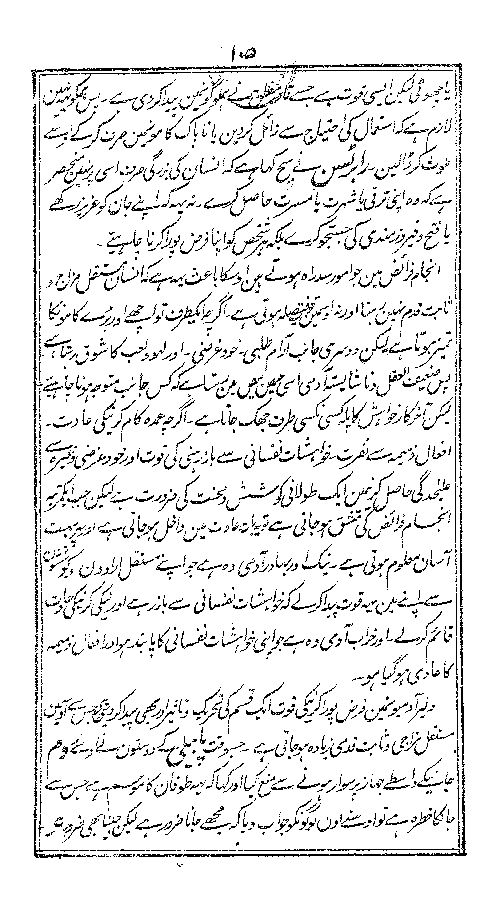 ۱۰۵
یا چھوٹی لیکن ایسی قوت ہے جسے قادر مطلق نے ہملوگونمین پیدا کردی ہے ۔ پس ہمکو نہین
لازم ہے کہ استعمال کی احتیاج سے زائل کردین یا ناپاک کامونمین صرف کرکے اسے
ملوث کر ڈالین ۔ رابرٹسن نے سچ کہا ہے کہ انسان کی بزرگی صرف اسی پر نہین منحصر
ہے کہ وہ اپنی ترقی یا شہرت یا مسرت حاصل کرے ۔ نہ یہ کہ اپنے جان کو عزیز رکھے
یا فتح و فیروزمندی کی جستجو کرے بلکہ ہر شخص کو اپنا فرض پورا کرنا چاہیے ۔
انجام فرائض مین جو امور سدراہ ہوتے ہین اوسکا باعث یہ ہے کہ انسان مستقل مزاج و
ثابت قدم نہین رہتا اور نہ اوسمین قوت فیصلہ ہوتی ہے ۔ اگرچہ ایکطرف تو اچھے اور برے کامونکا
تمیز ہوتا ہے لیکن دوسری جانب آرام طلبی ۔ خودغرضی ۔ اور لہو و لعب کا شوق رہتا ہے
پس ضعیف العقل و ناشایستہ آدمی اسی پس و پیش مین رہتا ہے کہ کس جانب متوجہ ہونا چاہیے
لیکن آخرکار خواہش کا پلہ کسی نکسی طرف جھک جاتا ہے ۔ اگرچہ عمدہ کام کرنیکی عادت ۔
افعال ذمیمہ سے نفرت ۔ خواہشات نفسانی سے باز رہنی کی قوت اور خودغرضی وغیرہ سے
علیحدگی حاصل کرنیمین ایک طولانی کوشش و محنت کی ضرورت ہے لیکن جب ایکمرتبہ
انجام فرائض کی مشق ہوجاتی ہے تو یہ بات عادت مین داخل ہوجاتی ہے اور یہ بہت
آسان معلوم ہوتی ہے ۔ نیک اور بہادر آدمی وہ ہے جو اپنے مستقل ارادون و کوششون
سے اپنے مین یہ قوت پیدا کرلے کہ خواہشات نفسانی سے باز رہے اور نیکی کرنیکی عادت
قائم کرلے ۔ اور خراب آدمی وہ ہے جو اپنی خواہشات نفسانی کا پابند ہو اور افعال ذمیمہ
کا عادی ہوگیا ہو ۔
دلیر آدمیونمین فرض پورا کرنیکی قوت ایک قسم کی تحریک و تاثیر اور بھی پیدا کردیتی ہے جس سے اونمین
مستقل مزاجی و ثابت قدمی زیادہ ہوجاتی ہے ۔ جسوقت پامپی کے دوستون نے اوسے روم
جانیکے واسطے جہاز پر سوار ہونے سے منع کیا اور کہا کہ یہ طوفان کا موسم ہے جس سے
جانکا خطرہ ہے تو اوسنے اون لوگونکو جواب دیا کہ مجھے جانا ضرور ہے لیکن جینا بھی ضرور